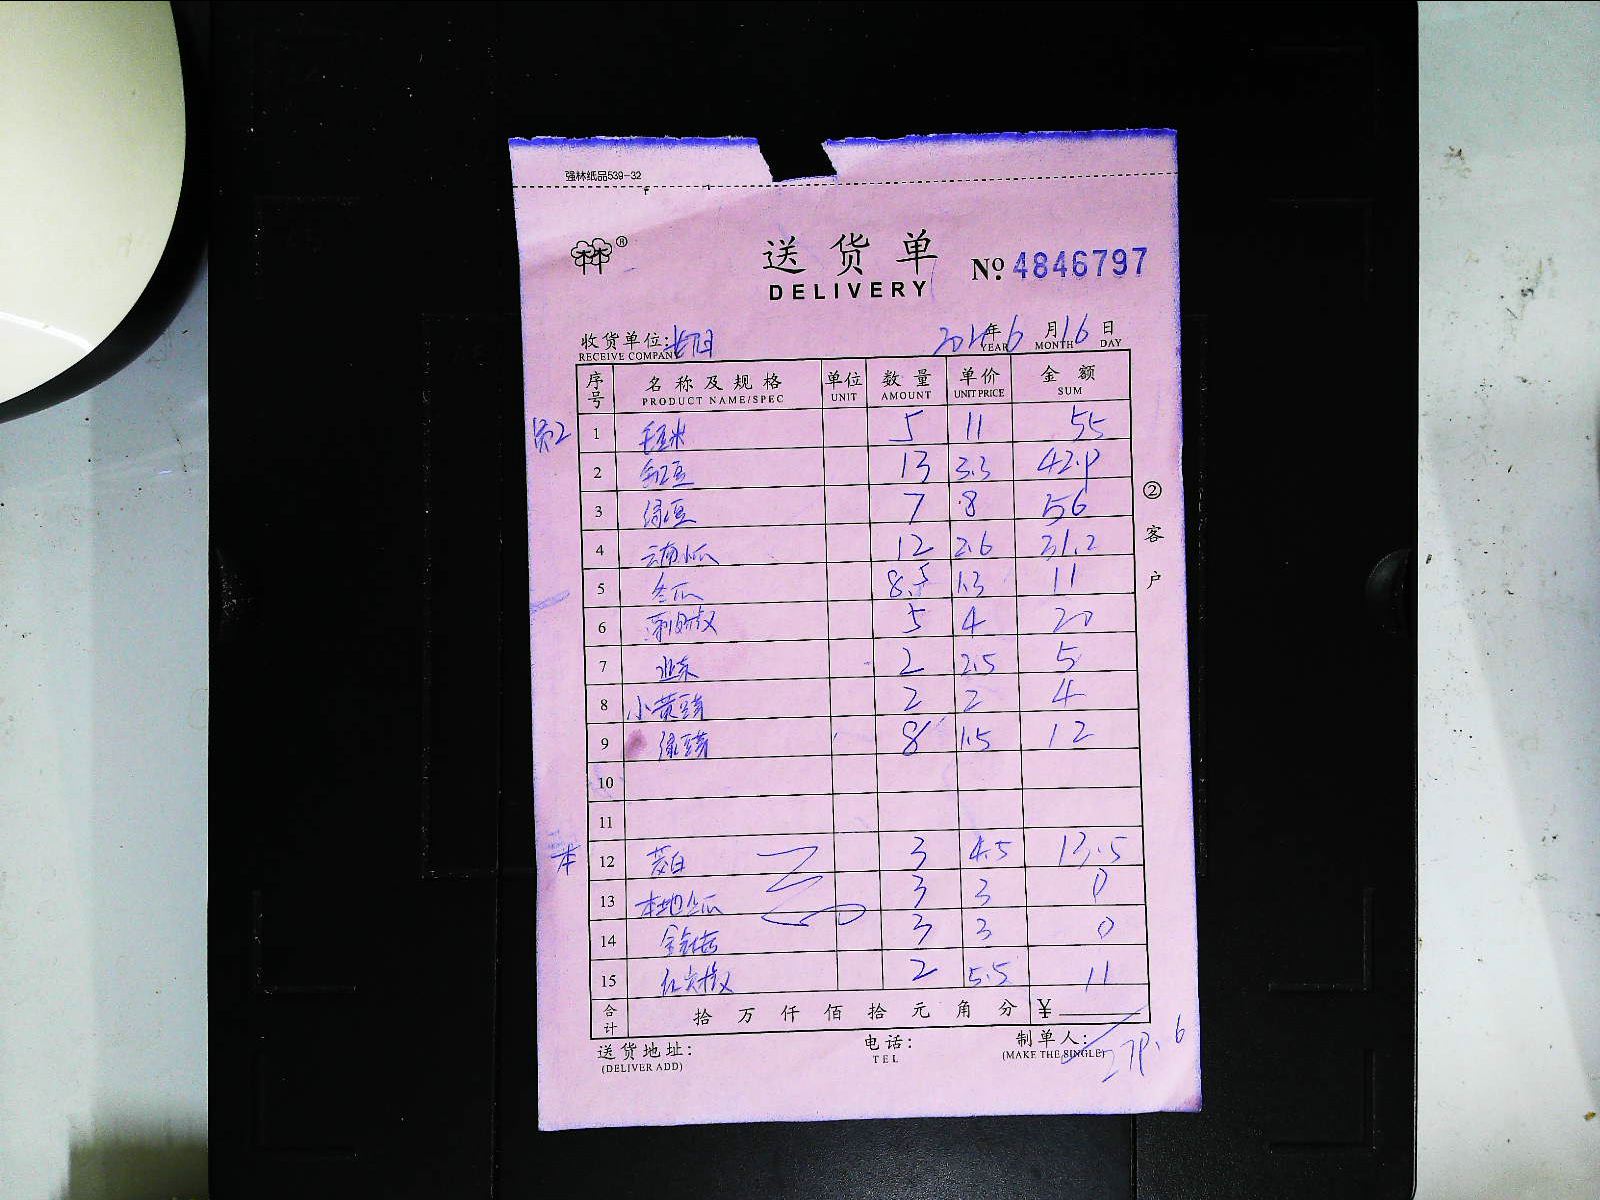 强林纸品539-32
送货单
DELIVERY
№ 4846797
收货单位: 2021年6月16日
RECEIVE COMPANY YEAR MONTH DAY
序号 名称及规格 单位 数量 单价 金额
PRODUCT NAME/SPEC UNIT AMOUNT UNIT PRICE SUM
1 毛豆米 5 11 55
2 豇豆 13 3.3 42.9
3 绿豆 7 8 56
4 云南小瓜 12 2.6 31.2
5 冬瓜 8.5 1.3 11
6 5 4 20
7 韭菜 2 2.5 5
8 小黄豆芽 2 2 4
9 绿豆芽 8 1.5 12
10
11
本 12 茭白 3 4.5 13.5
13 本地 3 3 9
14 金针菇 3 3 9
15 红尖椒 2 5.5 11
合计 拾 万 仟 佰 拾 元 角 分 ¥
279.6
送货地址: 电话: 制单人:
(DELIVER ADD) TEL (MAKE THE SINGLE)
②客户